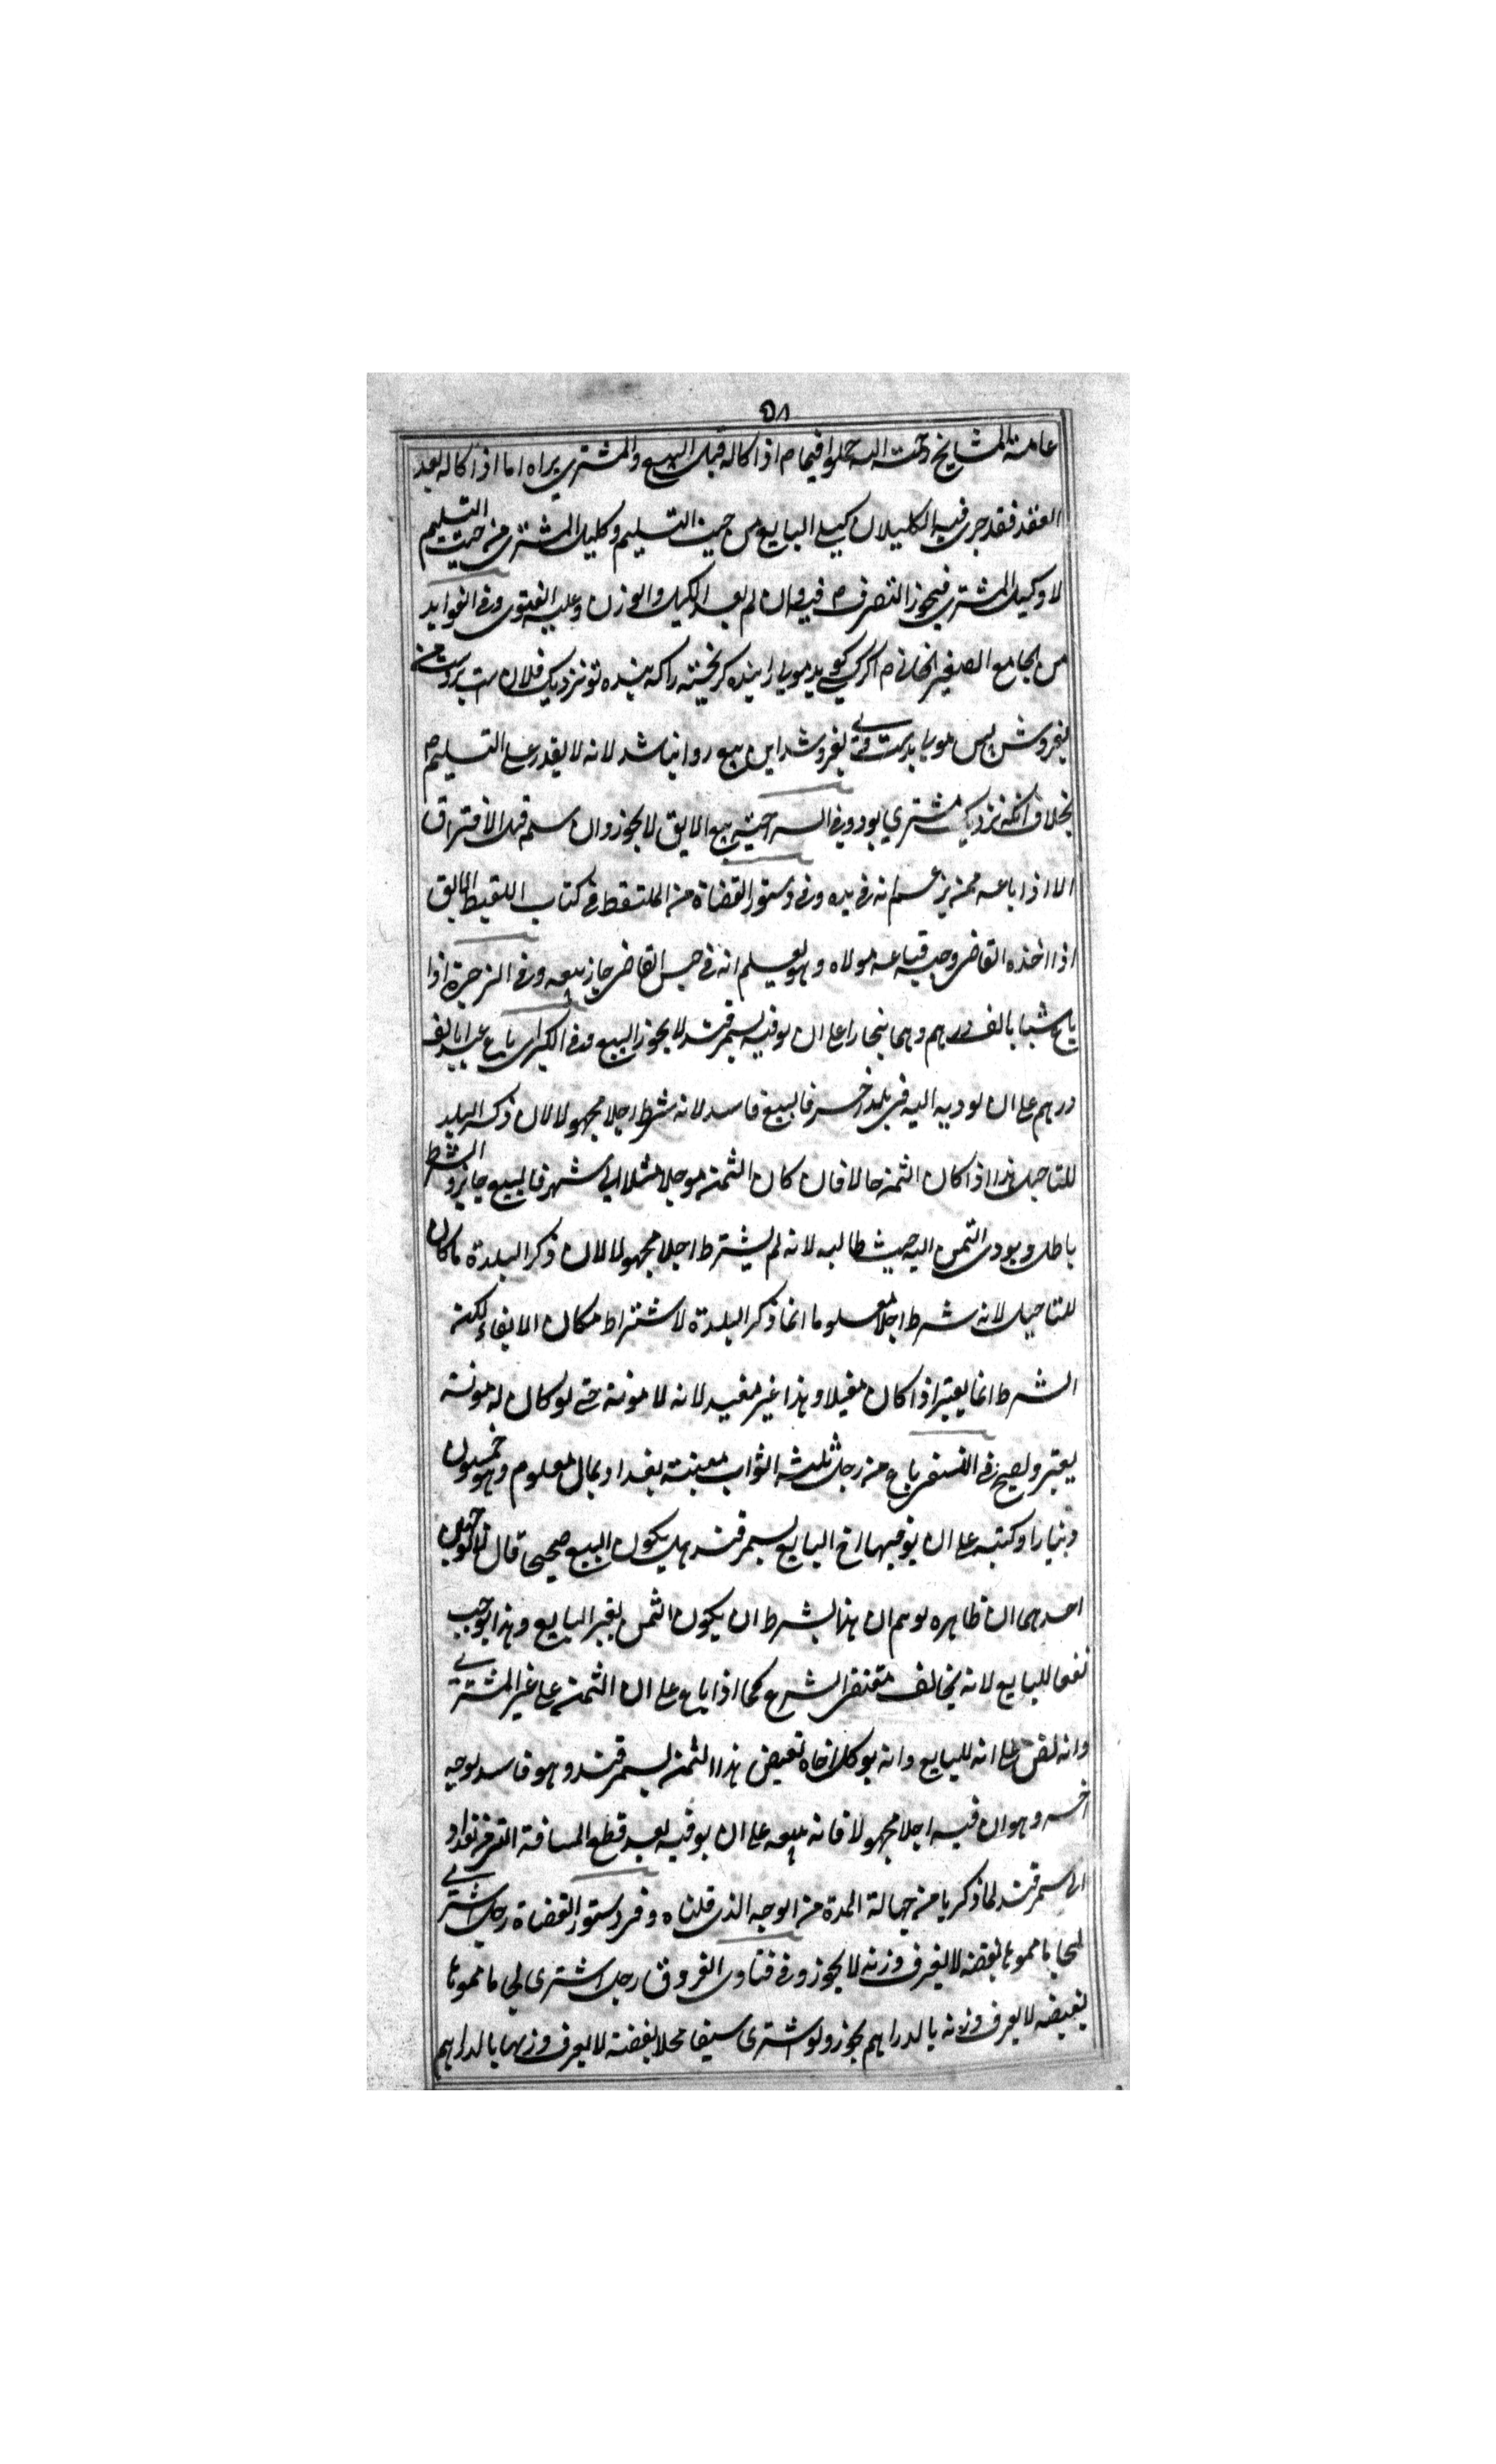 ٥٨
عامة المشايخ رحمة الله حملوا فيما م اذا كاله قبل البيع والمشتري يراه اما اذا كاله بعد
العقد فقد جرى فيه الكيلان كيل البايع من حيث التسليم وكيل المشترى من حيث التسليم
لا وكيل المشترى فيجوز التصرف م فيه وان لم يعد الكيل والوزن وعليه الفتوى وفى الفوايد
من الجامع الصغير الخانى م اكر كسى كويد مويا را بنده كريخته راكه بنده تو نزديك فلان ست بروى من
بفروش پس مويا بدست وى بفروشد اين بيع روا نباشد لانه لا يقدر على التسليم م
بخلاف انكه نزديك مشترى بود وفى السراجية بيع الابق لا يجوز وان سلمه قبل الافتراق
الا اذا باعه ممن يزعم انه فى يده وفى دستور القضاة من الملتقط فى كتاب اللقيط الابق
اذا اخذه القاضى وحبسه فباعه مولاه وهو يعلم انه فى حبس القاضى جاز بيعه وفى الذخيرة اذا
باع شيا بالف درهم وهما ببخارا على ان يوفيه بسمرقند لا يجوز البيع وفى الكبرى باع عبدا بالف
درهم على ان يوديه اليه فى بلد اخر فالبيع فاسد لانه شرط اجلا مجهولا لان ذكر البلد
للتاجيل هذا اذا كان الثمن حالا فان كان الثمن موجلا مثلا الى شهر فالبيع جايز والشرط
باطل ويودى الثمن اليه حيث طالبه لانه لم يشترط اجلا مجهولا لان ذكر البلدة ما كان
للتاجيل لانه شرط اجلا معلوما انما ذكر البلدة لاشتراط مكان الايفاء لكن
الشرط انما يعتبر اذا كان مفيدا وهذا غير مفيد لانه لا مونة حتى لو كان له مونة
يعتبر ويصح فى النسفى باع من رجل ثلثه اثواب معينة ببغداد بمال معلوم وهو خمسون
دينارا وكتبه على ان يوفيها اخ البايع بسمرقند هل يكون البيع صحيحا قال لا لوجهين
احدهما ان ظاهره يوهم ان هذا بشرط ان يكون الثمن لغير البايع وهذا يوجب
نفعا للبايع لانه يخالف مقتضى الشرع كما اذا باع على ان الثمن على غير المشترى
وانه نص على انه للبايع وانه يوكل اخاه بقبض هذا الثمن بسمرقند وهو فاسد لوجه
اخر وهو ان فيه اجلا مجهولا فانه بيعه على ان يوفيه بعد قطع المسافة التى من بغداد
الى سمرقند لما ذكرنا من جهالة المدة من الوجه الذى قلناه وفى دستور القضاة رجل اشترى
لجاما مموها بفضة لا يعرف وزنه لا يجوز وفى فتاوى الفروق رجل اشترى لجاما مموها
بفضه لا يعرف وزنه بالدراهم يجوز ولو اشترى سيفا محلا بفضة لا يعرف وزنها بالدراهم